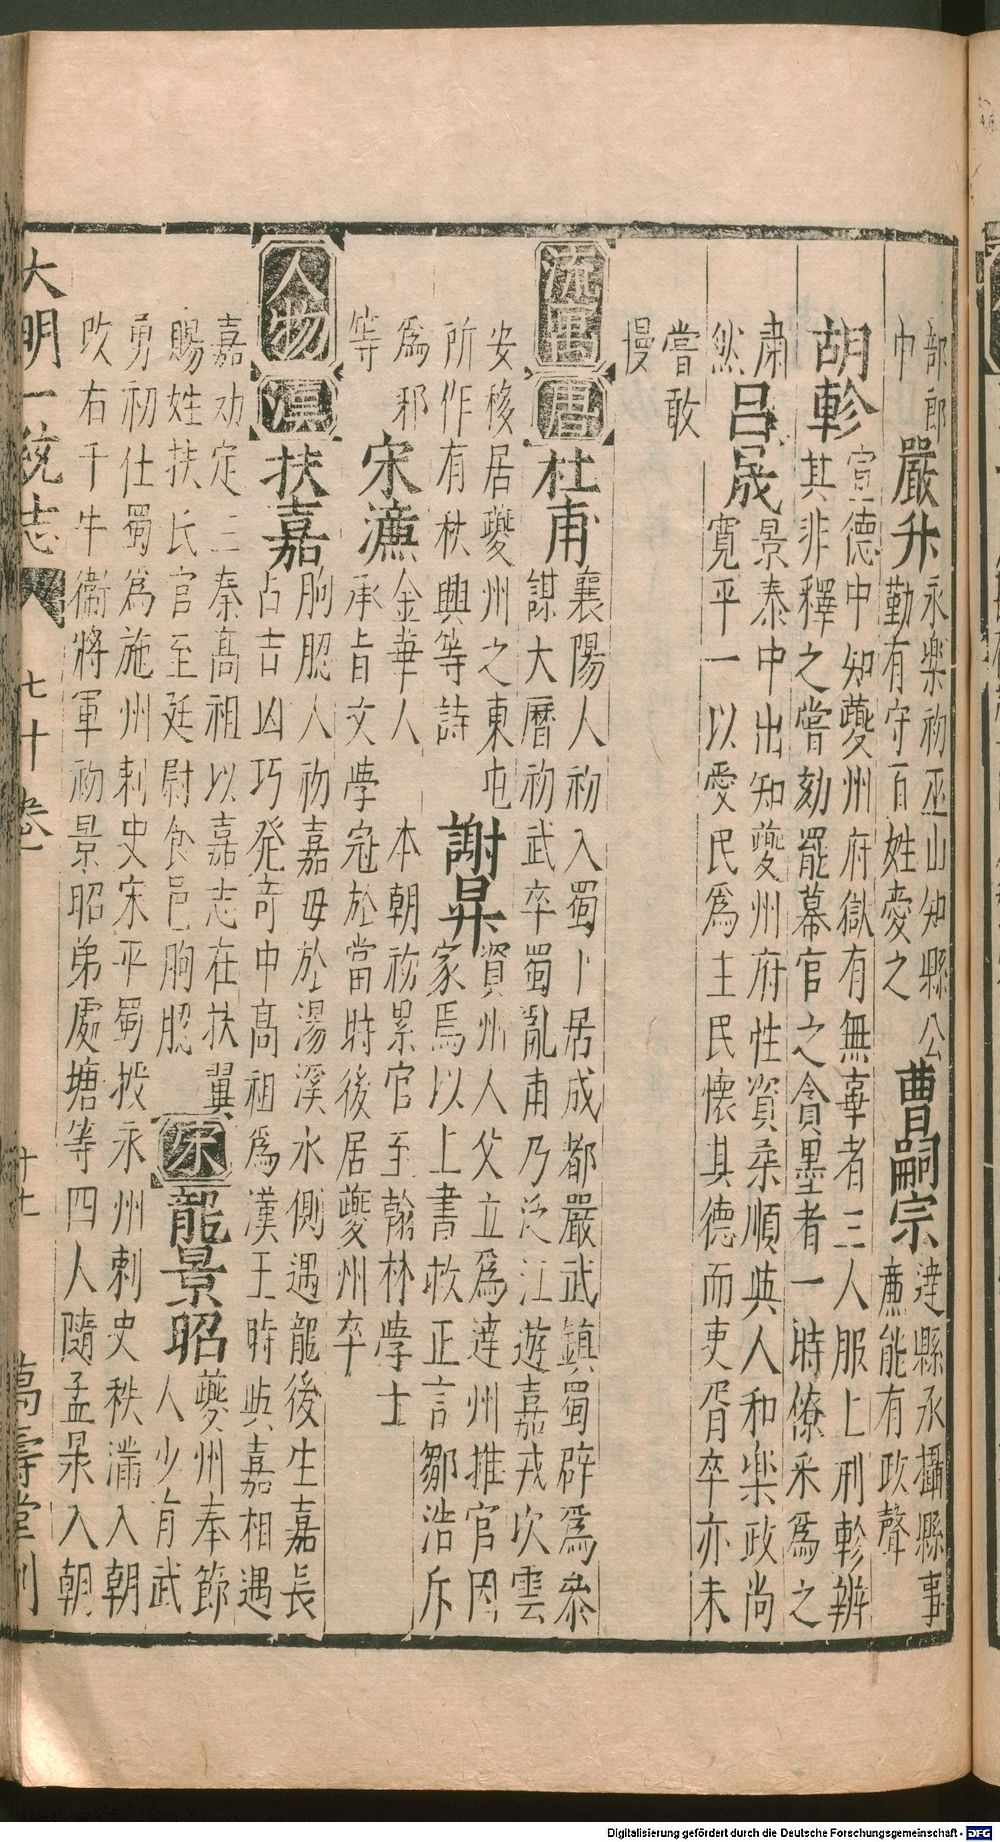 部郎
中
嚴升
永樂初巫山知縣公
勤有守百姓愛之
曹嗣宗
達縣丞攝縣事
廉能有政聲
胡軫
宣德中知夔州府獄有無辜者三人服上刑軫辨
其非釋之嘗劾罷幕官之貪墨者一時僚采爲之
肅
然
呂晟
景泰中出知夔州府性資柔順與人和樂政尚
寛平一以愛民爲主民懷其德而吏胥卒亦未
嘗敢
慢
流寓
唐
杜甫
襄陽人初入蜀卜居成都嚴武鎮蜀辟爲參
謀大曆初武卒蜀亂甫乃泛江遊嘉戎次雲
安移居夔州之東屯
所作有秋興等詩
謝昪
資州人父立爲達州推官因
家焉以上書救正言鄒浩斥
爲邪
等
宋濂
金華人 本朝初累官至翰林學士
承旨文學冠於當時後居夔州卒
人物
漢
扶嘉
朐䏰人初嘉母於湯溪水側遇龍後生嘉長
占吉凶巧発奇中高祖爲漢王時與嘉相遇
嘉劝定三秦高祖以嘉志在扶翼
賜姓扶氏官至廷尉食邑朐䏰
宋
龍景昭
夔州奉節
人少有武
勇初仕蜀爲施州刺史宋平蜀授永州刺史秩滿入朝
改右千牛衞將軍初景昭弟處塘等四人隨孟昶入朝
大明一統志 七十卷 廿七 萬壽堂刊
Digitalisierung gefördert durch die Deutsche Forschungsgemeinschaft - DFG